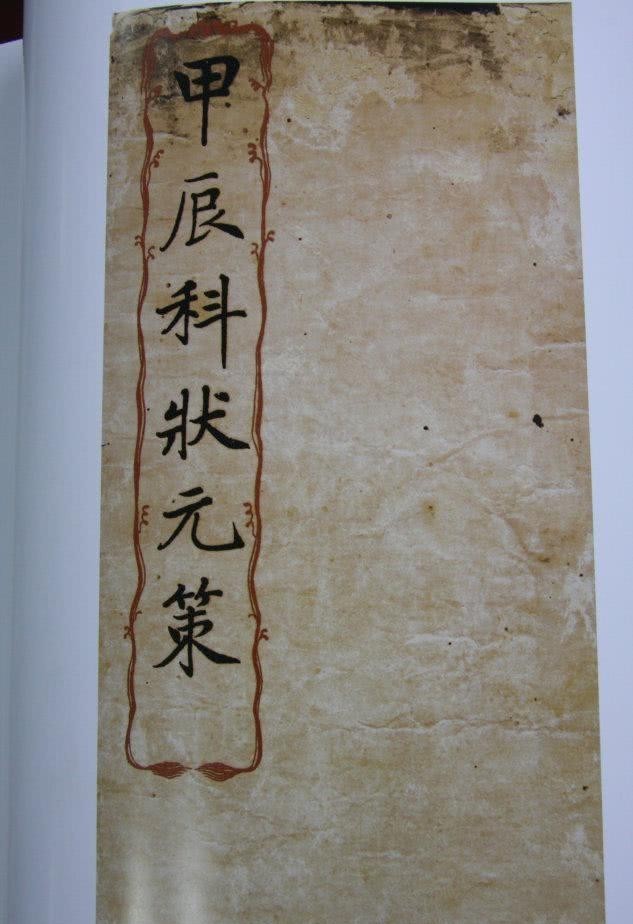 甲辰科狀元策